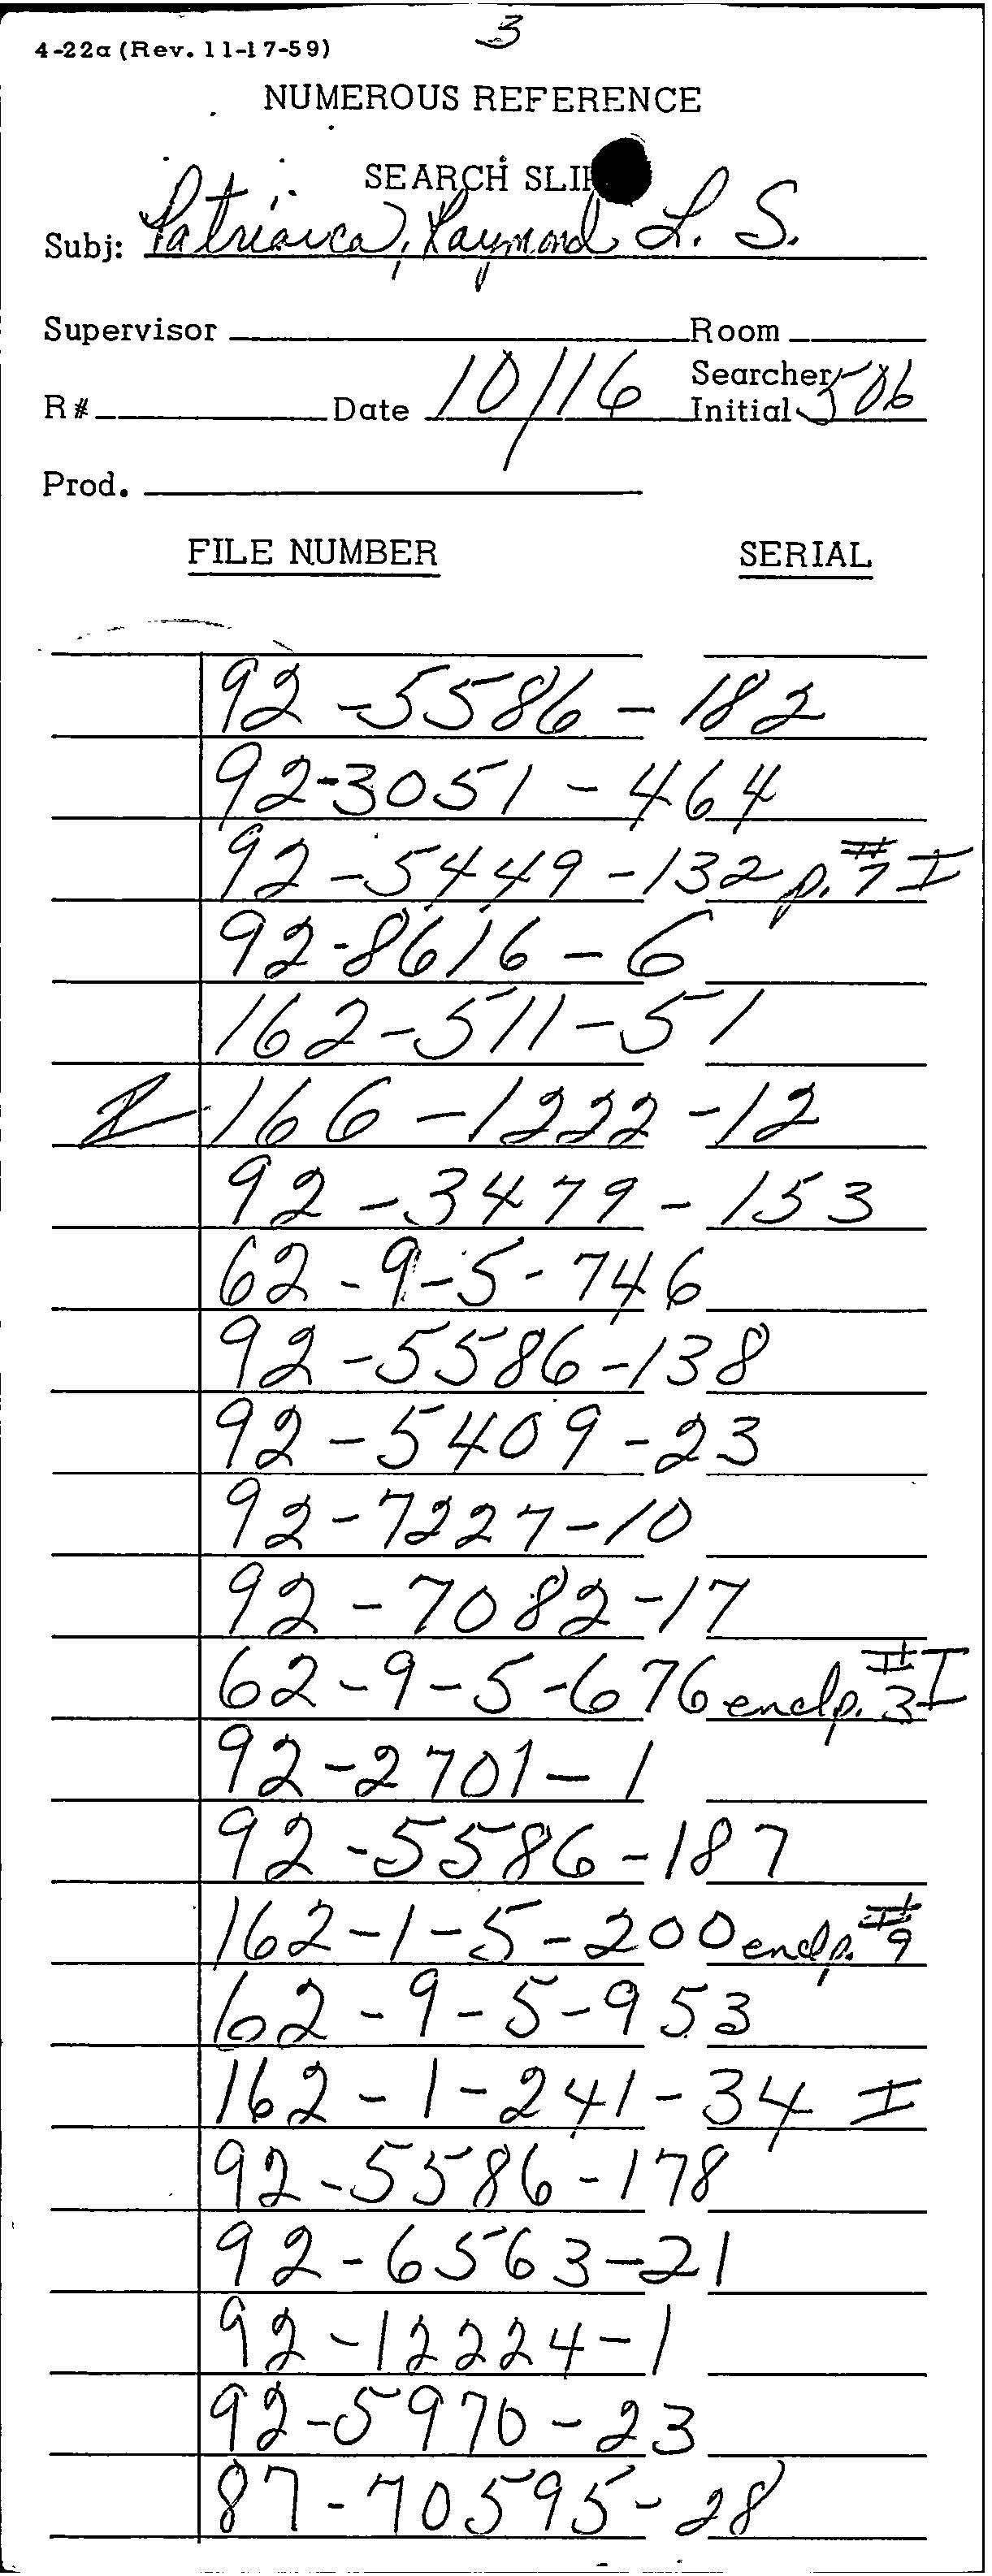 3
4-22a (Rev. 11-17-59)
NUMEROUS REFERENCE
SEARCH SLIP
Subj: Patriarca, Raymond L. S.
Supervisor Room
R# Date 10/16 Searcher Initial 506
Prod.
FILE NUMBER SERIAL
92-5586-182
92-3051-464
92-5449-132 p.#7 I
92-8616-6
162-511-51
I 166-1222-12
92-3479-153
62-9-5-746
92-5586-138
92-5409-23
92-7227-10
92-7082-17
62-9-5-676 encl p.#3 I
92-2701-1
92-5586-187
162-1-5-200 encl p.#9
62-9-5-953
162-1-241-34 I
92-5586-178
92-6563-21
92-12224-1
92-5970-23
87-70595-28